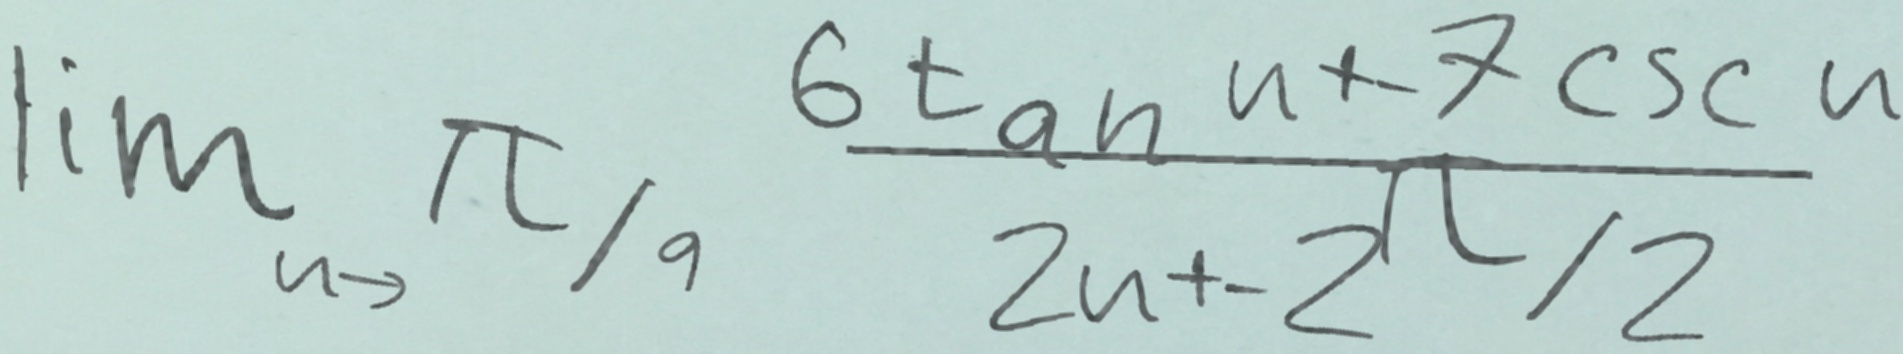 lim u→ π/9 (6 tan u + -7 csc u)/(2u + -2π/2)